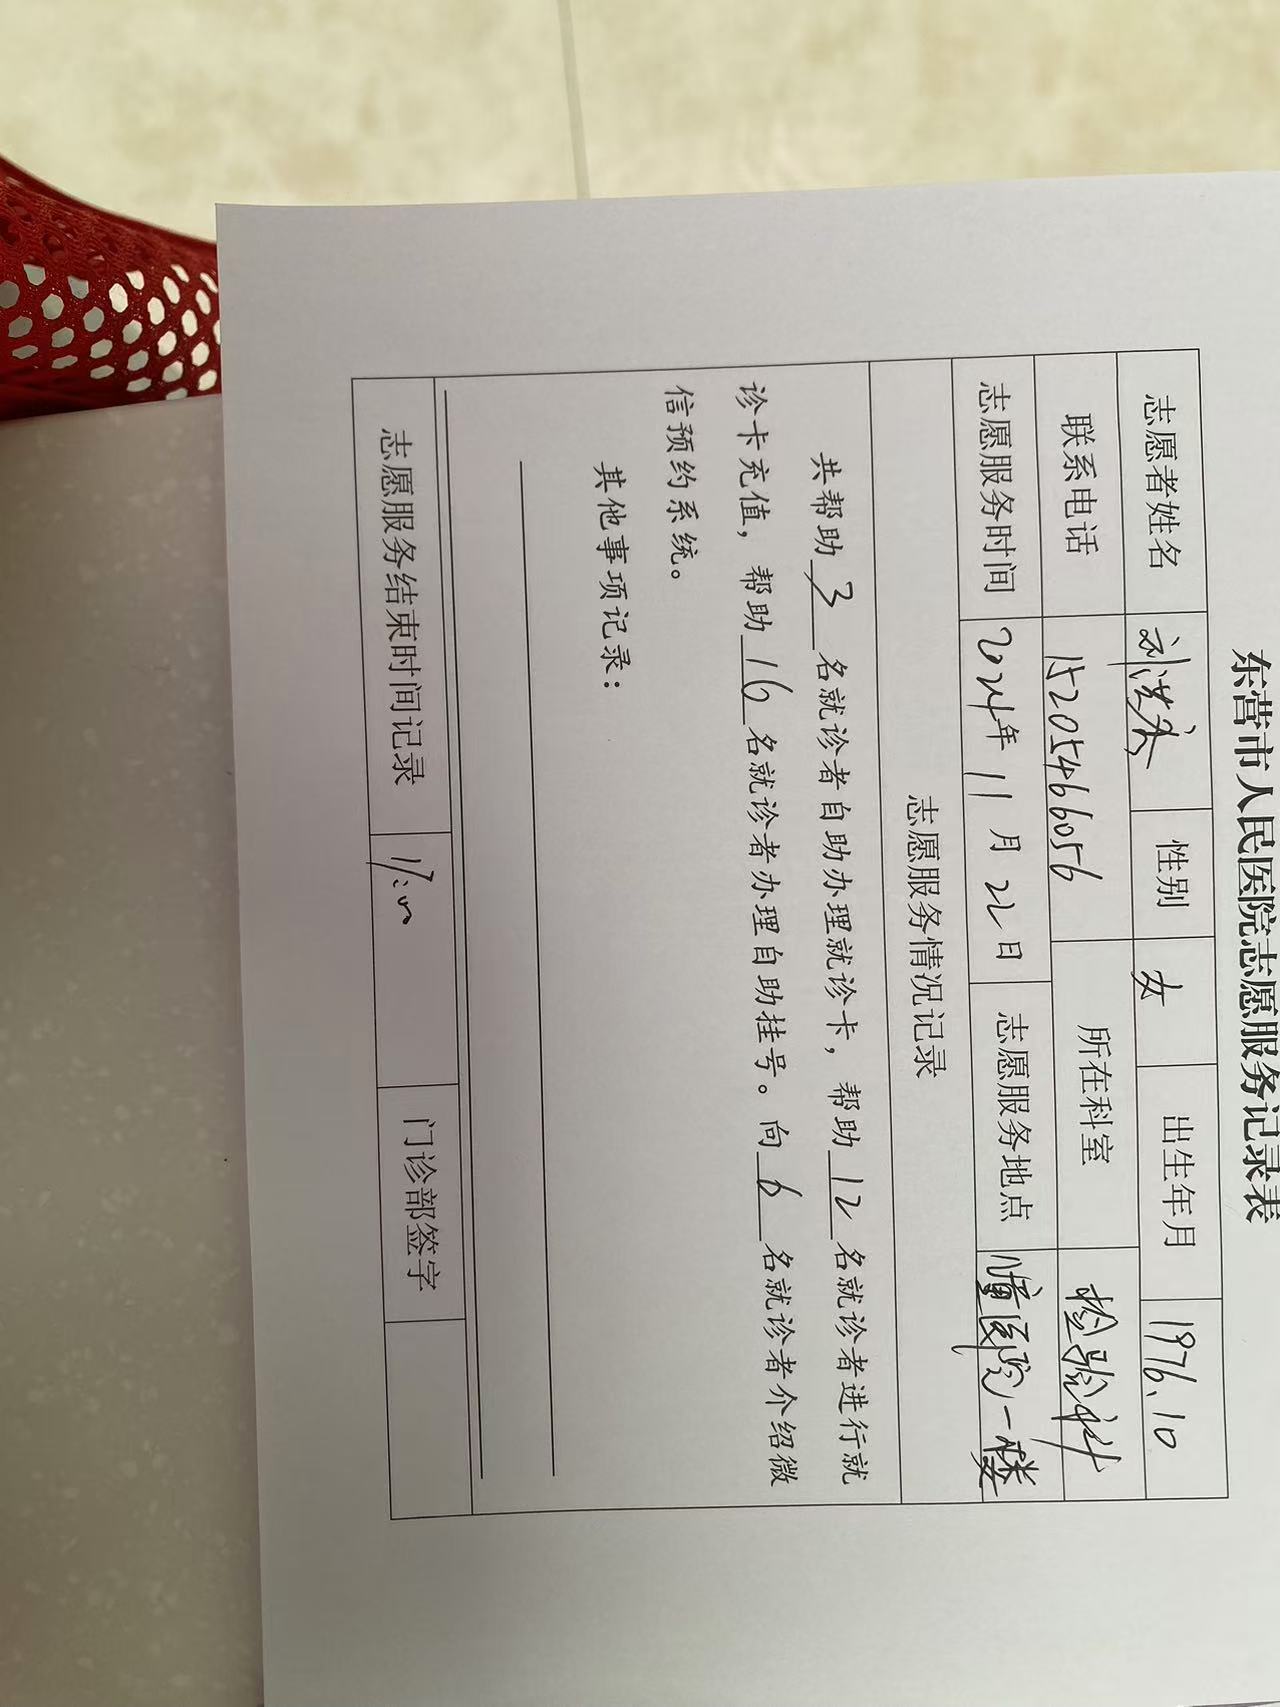 东营市人民医院志愿服务记录表
志愿者姓名 刘洪 性别 女 出生年月 1976.10
联系电话 15205466056 所在科室 检验科
志愿服务时间 2024年 11 月 22 日 志愿服务地点 医院一楼
志愿服务情况记录
共帮助 3 名就诊者自助办理就诊卡，帮助 12 名就诊者进行就
诊卡充值，帮助 16 名就诊者办理自助挂号。向 6 名就诊者介绍微
信预约系统。
其他事项记录：
志愿服务结束时间记录 门诊部签字